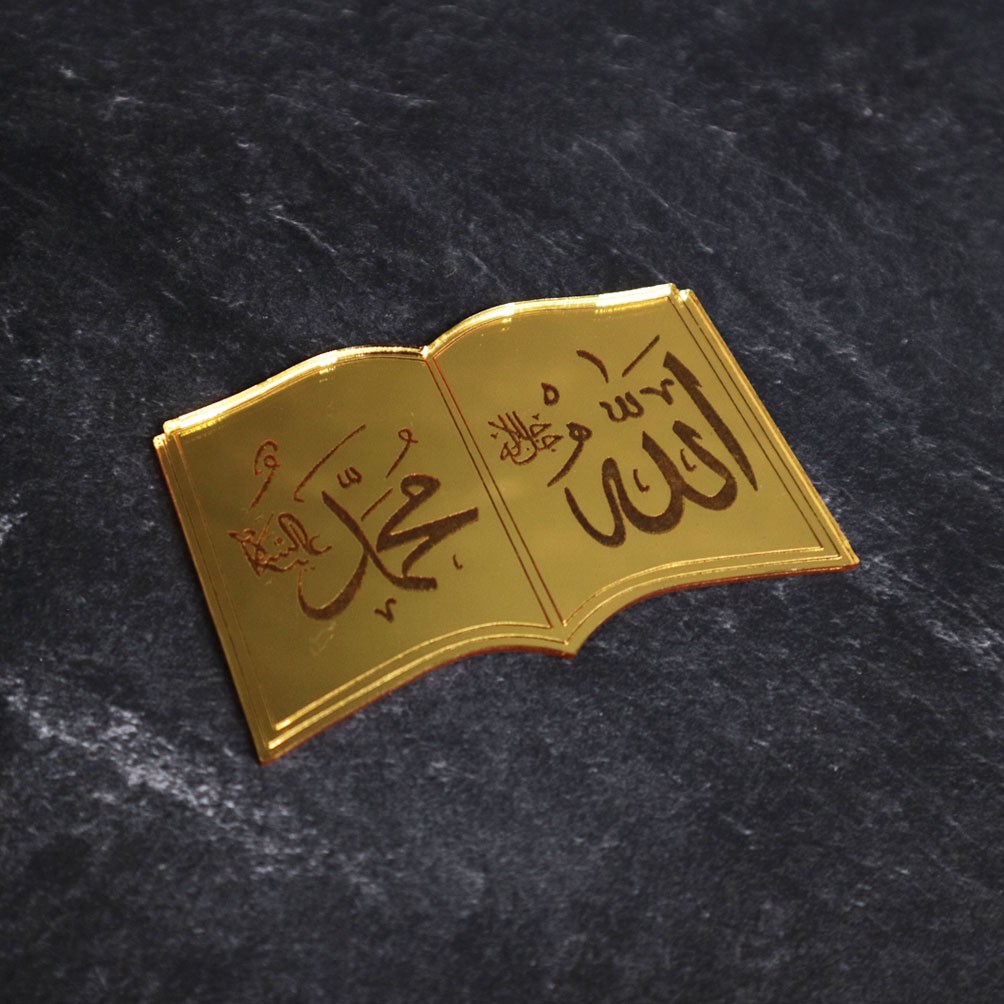 اللّٰه جل جلاله
محمّد عليه السلام